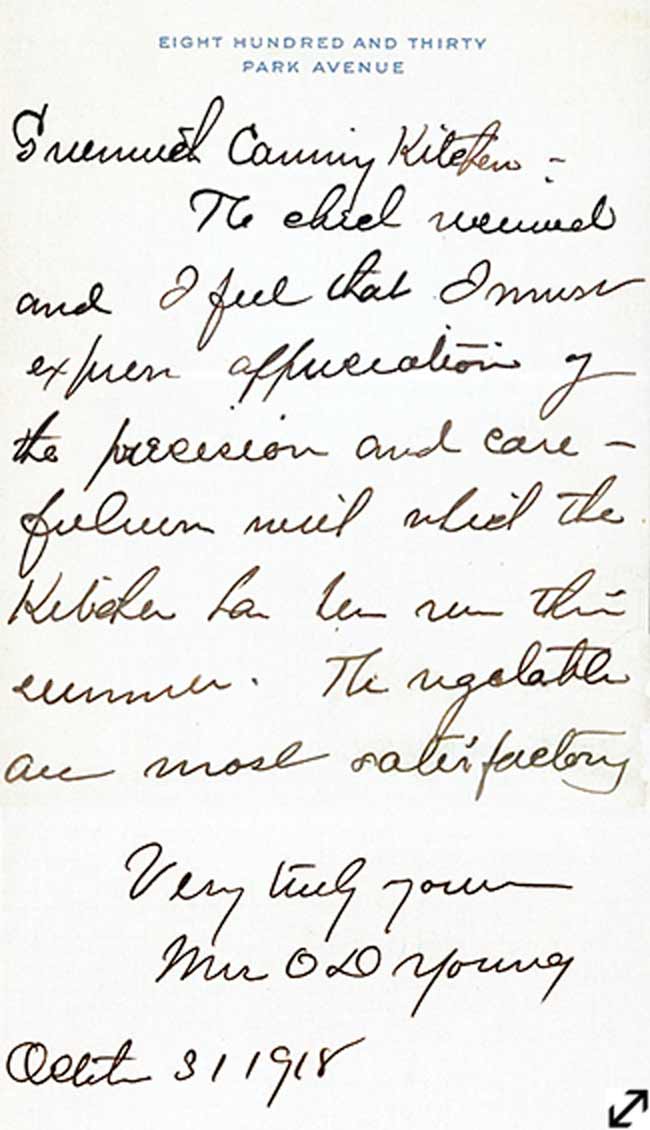 EIGHT HUNDRED AND THIRTY
PARK AVENUE
Greenwich Canning Kitchen -
The check received
and I feel that I must
express appreciation of
the precision and care-
fulness with which the
Kitchen has been run this
summer. The vegetables
are most satisfactory
Very truly yours
Mrs O D Young
October 31 1918